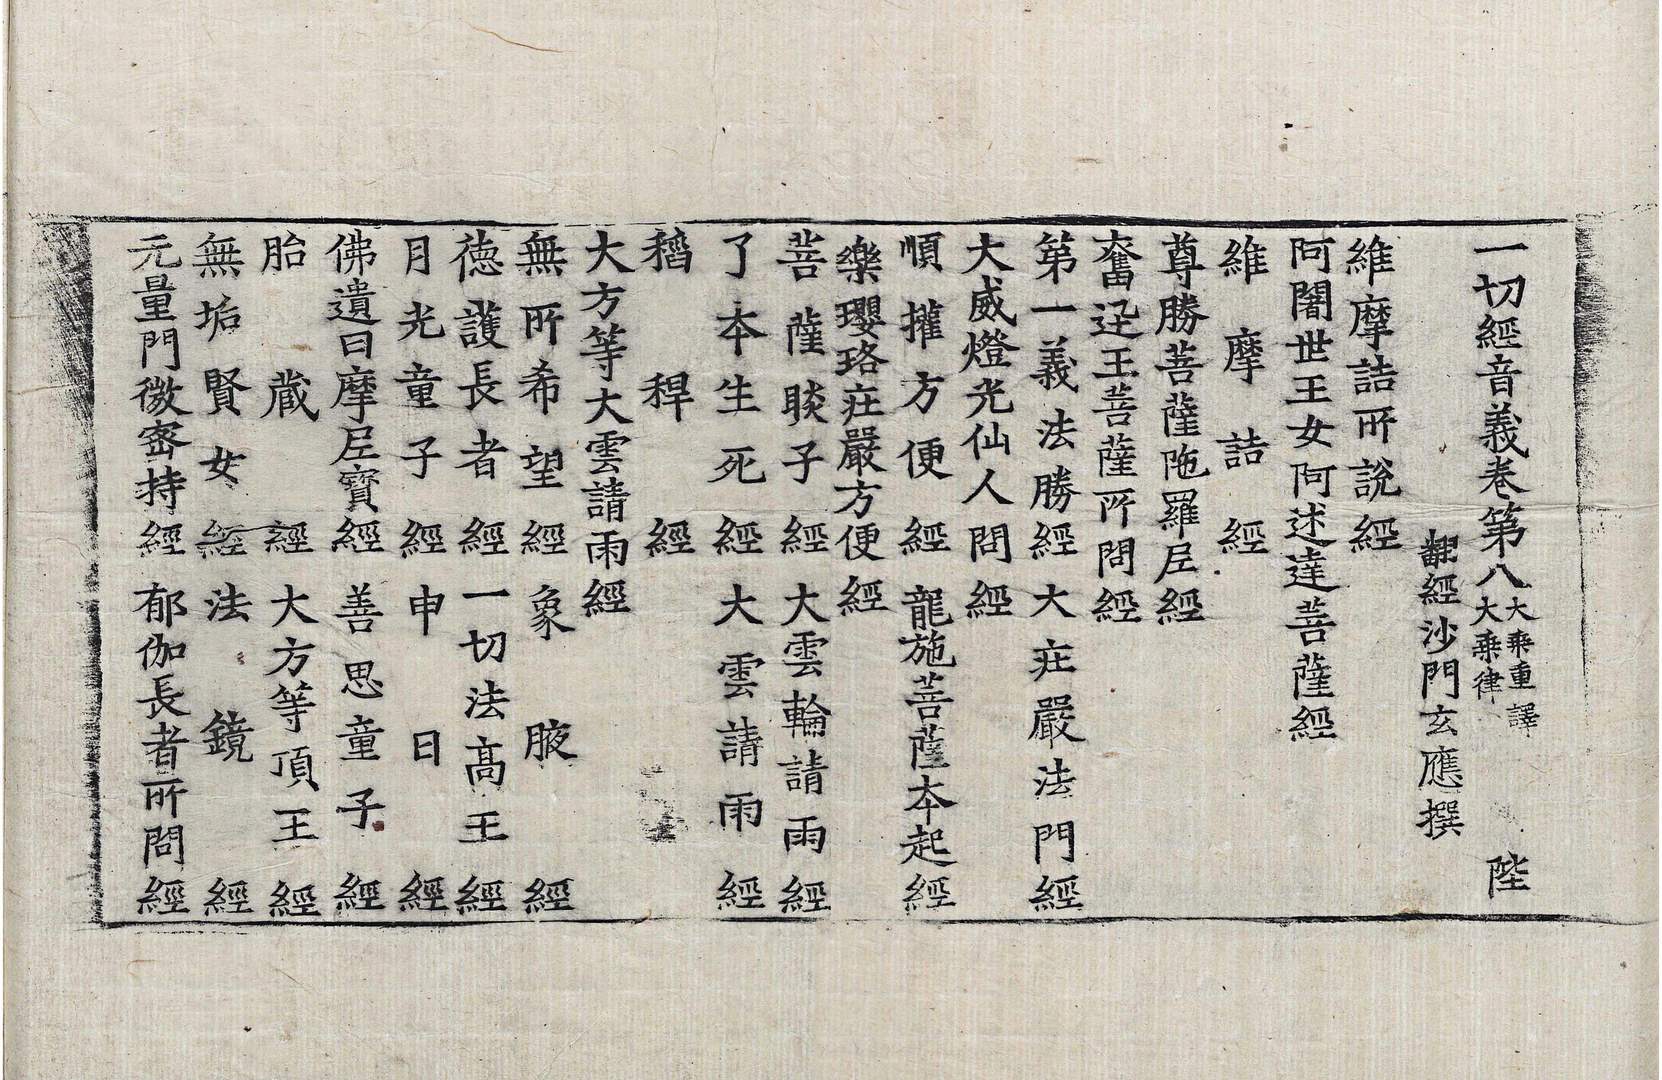 一切經音義卷第八 大乘重譯 大乘律 陛
翻經沙門玄應撰
維摩詰所說經
阿闍世王女阿述達菩薩經
維摩詰經
尊勝菩薩陁羅尼經
奮迅王菩薩所問經
第一義法勝經 大莊嚴法門經
大威燈光仙人問經
順權方便經 龍施菩薩本起經
樂瓔珞莊嚴方便經
菩薩睒子經 大雲輪請雨經
了本生死經 大雲請雨經
稻稈經
大方等大雲請雨經
無所希望經 象腋經
德護長者經 一切法高王經
月光童子經 申日經
佛遺日摩尼寶經 善思童子經
胎藏經 大方等頂王經
無垢賢女經 法鏡經
无量門微密持經 郁伽長者所問經